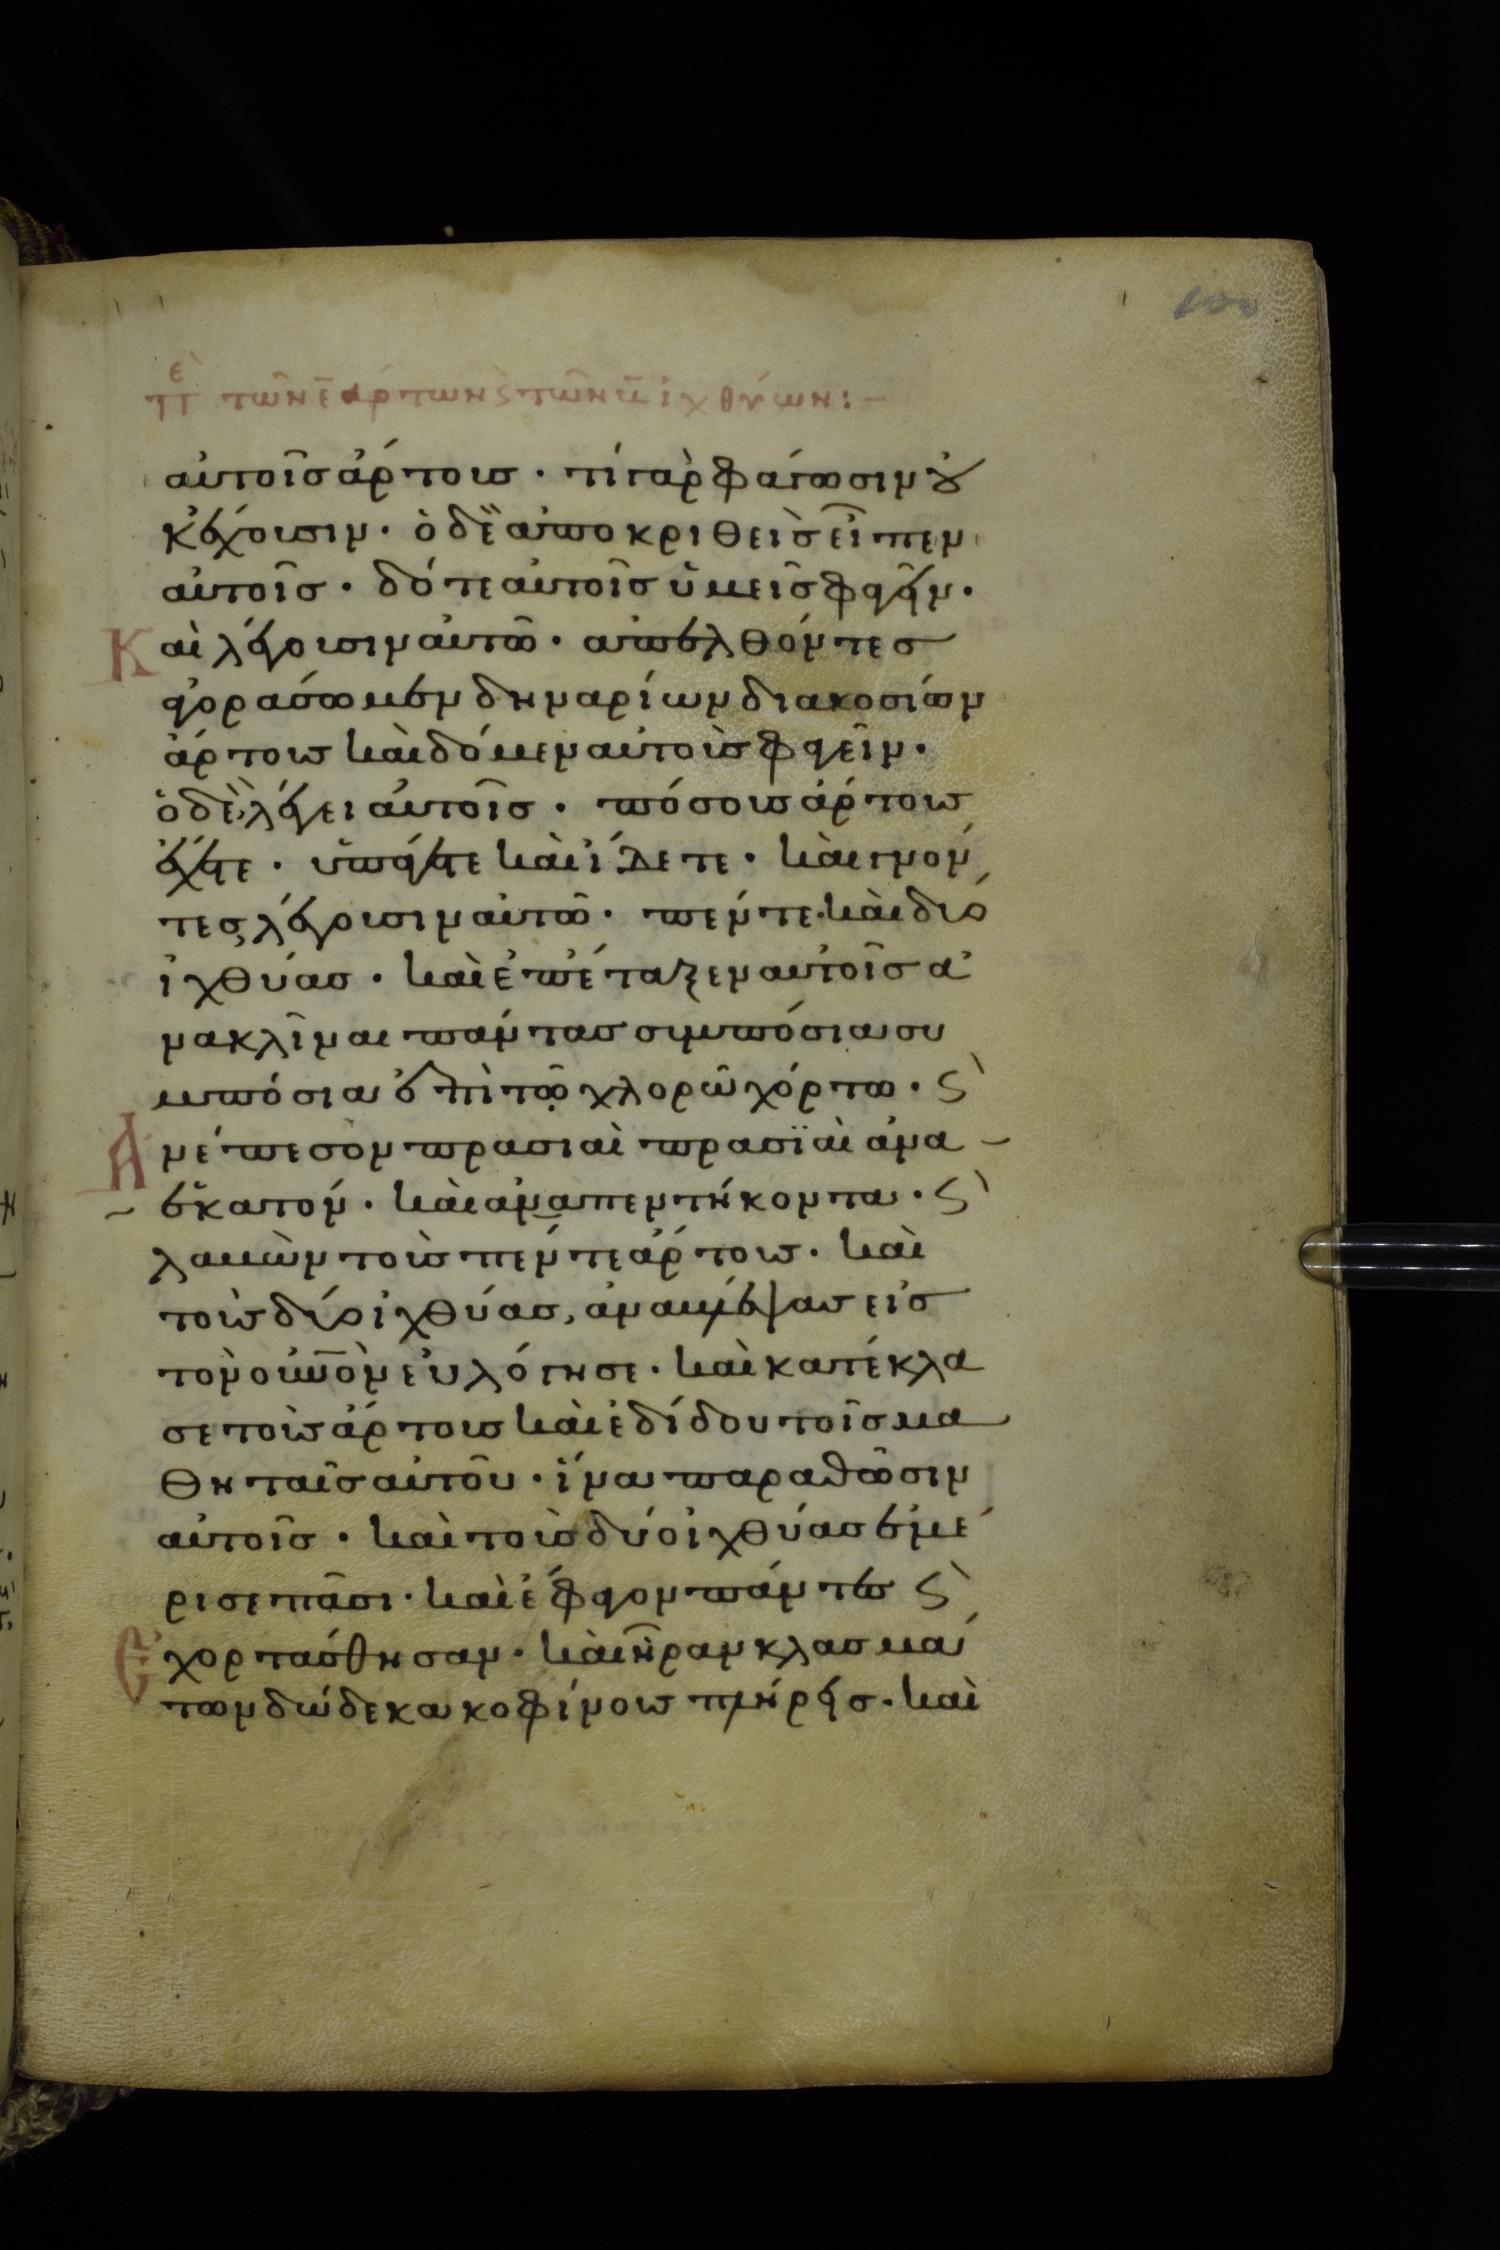 100
πε τῶν ε̄ ἄρτων ϛ τῶν β̄ ἰχθύων :-
αὐτοῖς ἄρτους · τί γὰρ φάγωσιν ȣ̓
κ ἔχουσιν · ὁ δὲ ἀποκριθεὶς εἶπεν
αὐτοῖς · δότε αὐτοῖς ὑμεῖς φαγεῖν ·
Καὶ λέγουσιν αὐτῶ · ἀπελθόντες
ἀγοράσωμεν δηναρίων διακοσίων
ἄρτους καὶ δόμεν αὐτοὶς φαγεῖν ·
ὁ δὲ λέγει αὐτοῖς · πόσους ἄρτους
ἔχετε · ὑπάγετε καὶ ἴδετε · καὶ γνόν
τες λέγουσιν αὐτῶ · πέντε · καὶ δύο
ἰχθύας · καὶ ἐπέταξεν αὐτοῖς ἀ
νακλῖναι πάντας συμπόσια συ
μπόσια ἐπὶ τῶ χλορῶ χόρτω · ϛ
Ἀνέπεσον πρασιαὶ πρασϊαὶ ἀνα
ἑκατόν · καὶ ἀνα πεντήκοντα · ϛ
λαβὼν τοὺς πέντε ἄρτους · καὶ
τοὺς δύο ἰχθύας, ἀναβλέψας εἰς
τὸν οὐνὸν εὐλόγησε · καὶ κατέκλα
σε τοὺς ἄρτους καὶ ἐδίδου τοῖς μα
θηταῖς αὐτοῦ · ἵνα παραθῶσιν
αὐτοῖς · καὶ τοὺς δύο ἰχθύας ἐμέ
ρισε πᾶσι · καὶ ἔφαγον πάντες ϛ
Ἐχορτάσθησαν · καὶ ἦραν κλασμά
των δώδεκα κοφίνους πλήρεις · καὶ